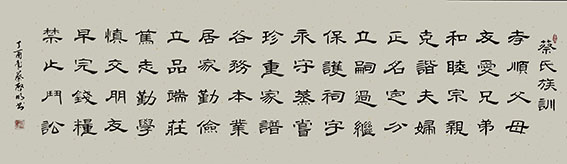 蔡氏族訓
孝順父母
友愛兄弟
和睦宗親
克諧夫婦
正名定分
立嗣過繼
保護祠宇
永守蒸嘗
珍重家譜
各務本業
居家勤儉
立品端莊
篤志勤學
慎交朋友
早完錢糧
禁止鬥訟
丁酉 蔡 明书